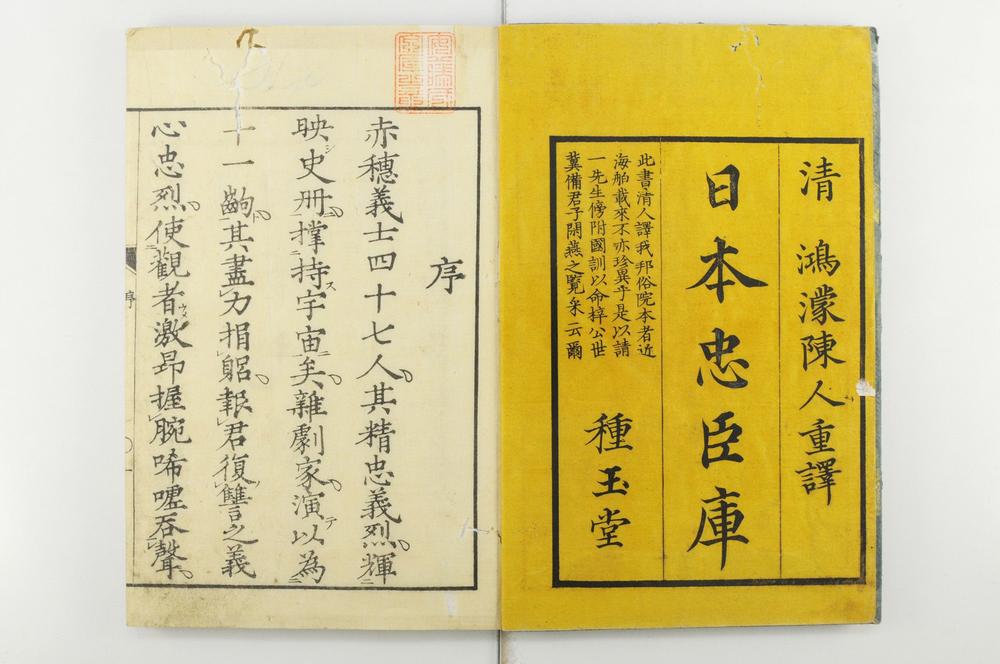 清 鴻濛陳人重譯
日本忠臣庫
此書清人譯我邦俗院本者近
海舶載來不亦珍異乎是以請
一先生傍附國訓以命梓公世
冀備君子閒燕之覽采云爾
種玉堂
序
赤穗義士四十七人其精忠義烈輝
映史册撐持宇宙矣雜劇家演以為
十一齣其盡力捐躬報君復讐之義
心忠烈使觀者激昂握腕唏噓吞聲
序